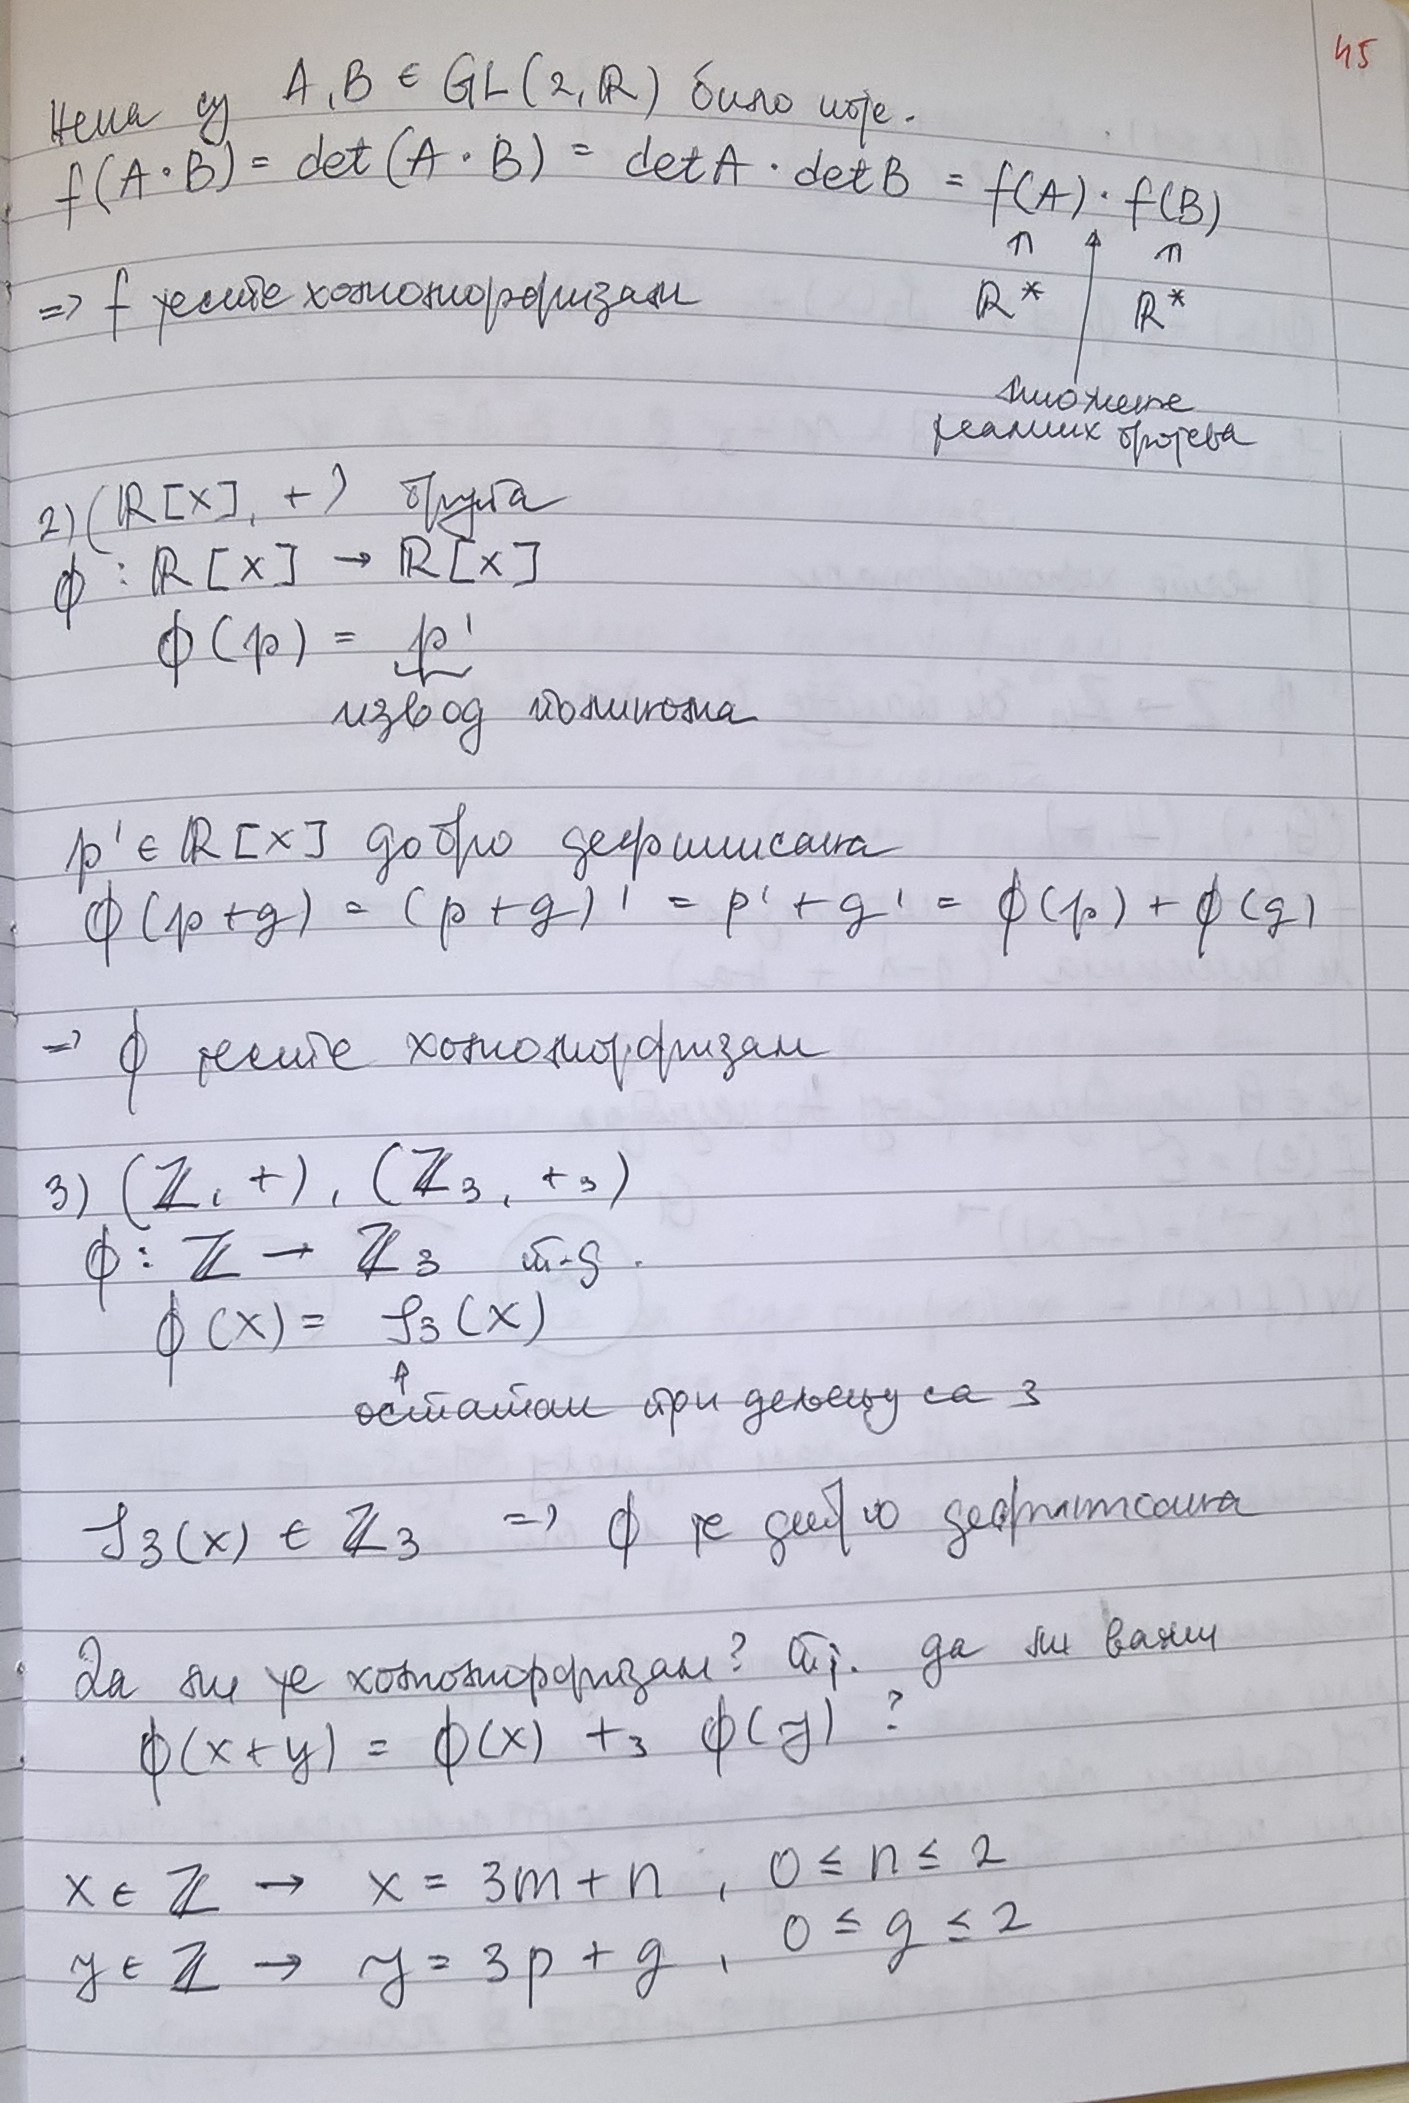 45
Нека су A, B ∈ GL(2, ℝ) било које.
f(A·B) = det(A·B) = detA · detB = f(A) · f(B)
∩ ↑ ∩
ℝ* ℝ*
⇒ f јесте хомоморфизам
множење
реалних бројева
2) (ℝ[x], +) група
ϕ : ℝ[x] → ℝ[x]
ϕ(p) = p'
извод полинома
p' ∈ ℝ[x] добро дефинисана
ϕ(p+g) = (p+g)' = p' + g' = ϕ(p) + ϕ(g)
⇒ ϕ јесте хомоморфизам
3) (ℤ, +), (ℤ₃, +₃)
ϕ : ℤ → ℤ₃ т-д.
ϕ(x) = ρ₃(x)
↑
остатак при дељењу са 3
ρ₃(x) ∈ ℤ₃ ⇒ ϕ је добро дефинисана
Да ли је хомоморфизам? Тј. да ли важи
ϕ(x+y) = ϕ(x) +₃ ϕ(y) ?
x ∈ ℤ → x = 3m + n , 0 ≤ n ≤ 2
y ∈ ℤ → y = 3p + g , 0 ≤ g ≤ 2